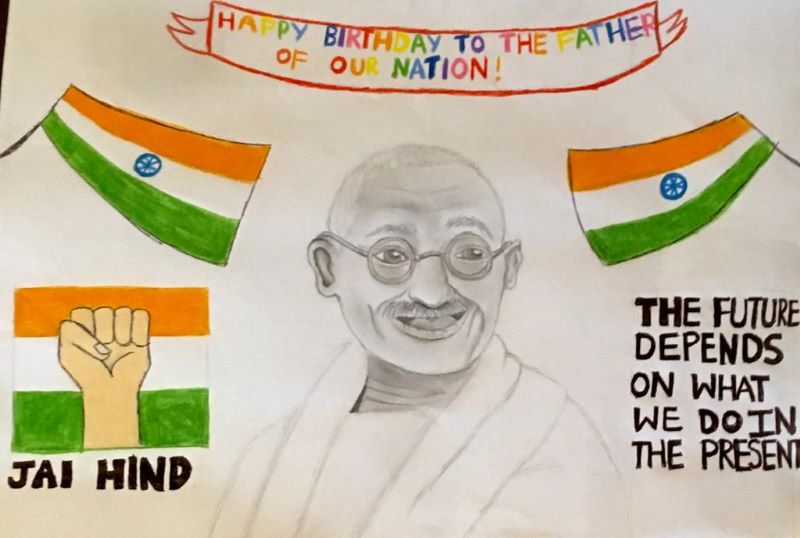 HAPPY BIRTHDAY TO THE FATHER
OF OUR NATION!
JAI HIND
THE FUTURE
DEPENDS
ON WHAT
WE DO IN
THE PRESENT